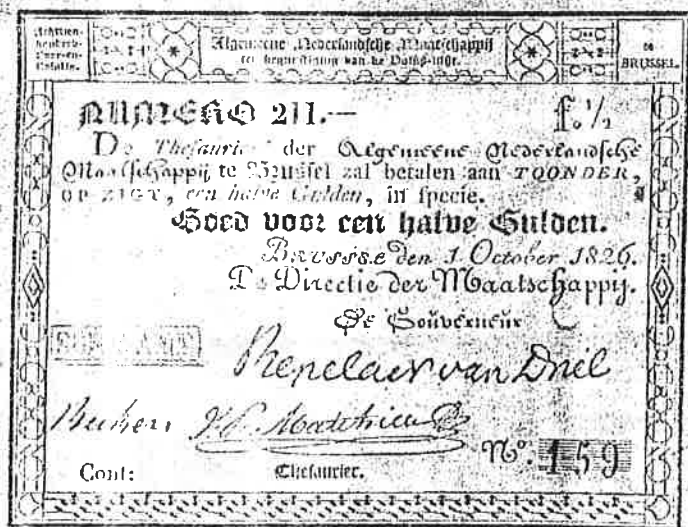 Algemeene Nederlandsche Maatschappij
ter begunstiging van de Volks-vlijt.
te
BRUSSEL.
NUMERO 211.—
f. ½
De Thesaurier der Algemeene Nederlandsche
Maatschappij te Brussel zal betalen aan TOONDER,
OP ZIGT, een halve Gulden, in specie.
Goed voor een halve Gulden.
Brussel den 1 October 1826.
De Directie der Maatschappij.
De Gouverneur
Repelaer van Driel
Cont:
Thesaurier.
No. 159